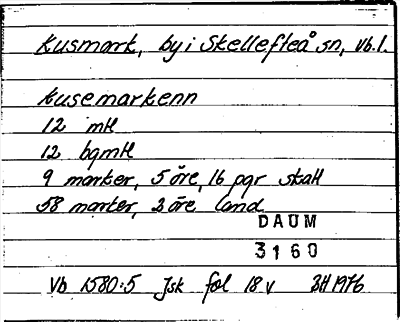 Kusmark, by i Skellefteå sn, Vb.l.
Kusemarkenn
12 mtl
12 bgmtl
9 marker, 5 öre, 16 pgr skatt
58 marker, 2 öre land
DAUM
3160
Vb 1580:5 Jsk fol 18 v BH 1976